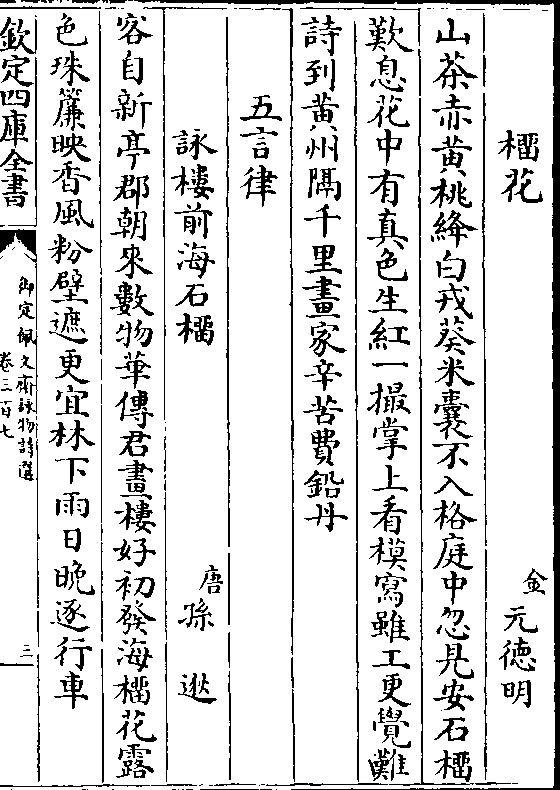 橊花
金 元徳明
山茶赤黄桃絳白戎葵米囊不入格庭中忽見安石橊
歎息花中有真色生紅一撮掌上看模寫雖工更覺難
詩到黄州隔千里畫家辛苦費鉛丹
五言律
詠樓前海石橊
唐 孫逖
客自新亭郡朝來數物華傳君畫樓好初發海橊花露
色珠簾映香風粉壁遮更宜林下雨日晚逐行車
欽定四庫全書
御定佩文齋詠物詩選
卷三百七
三